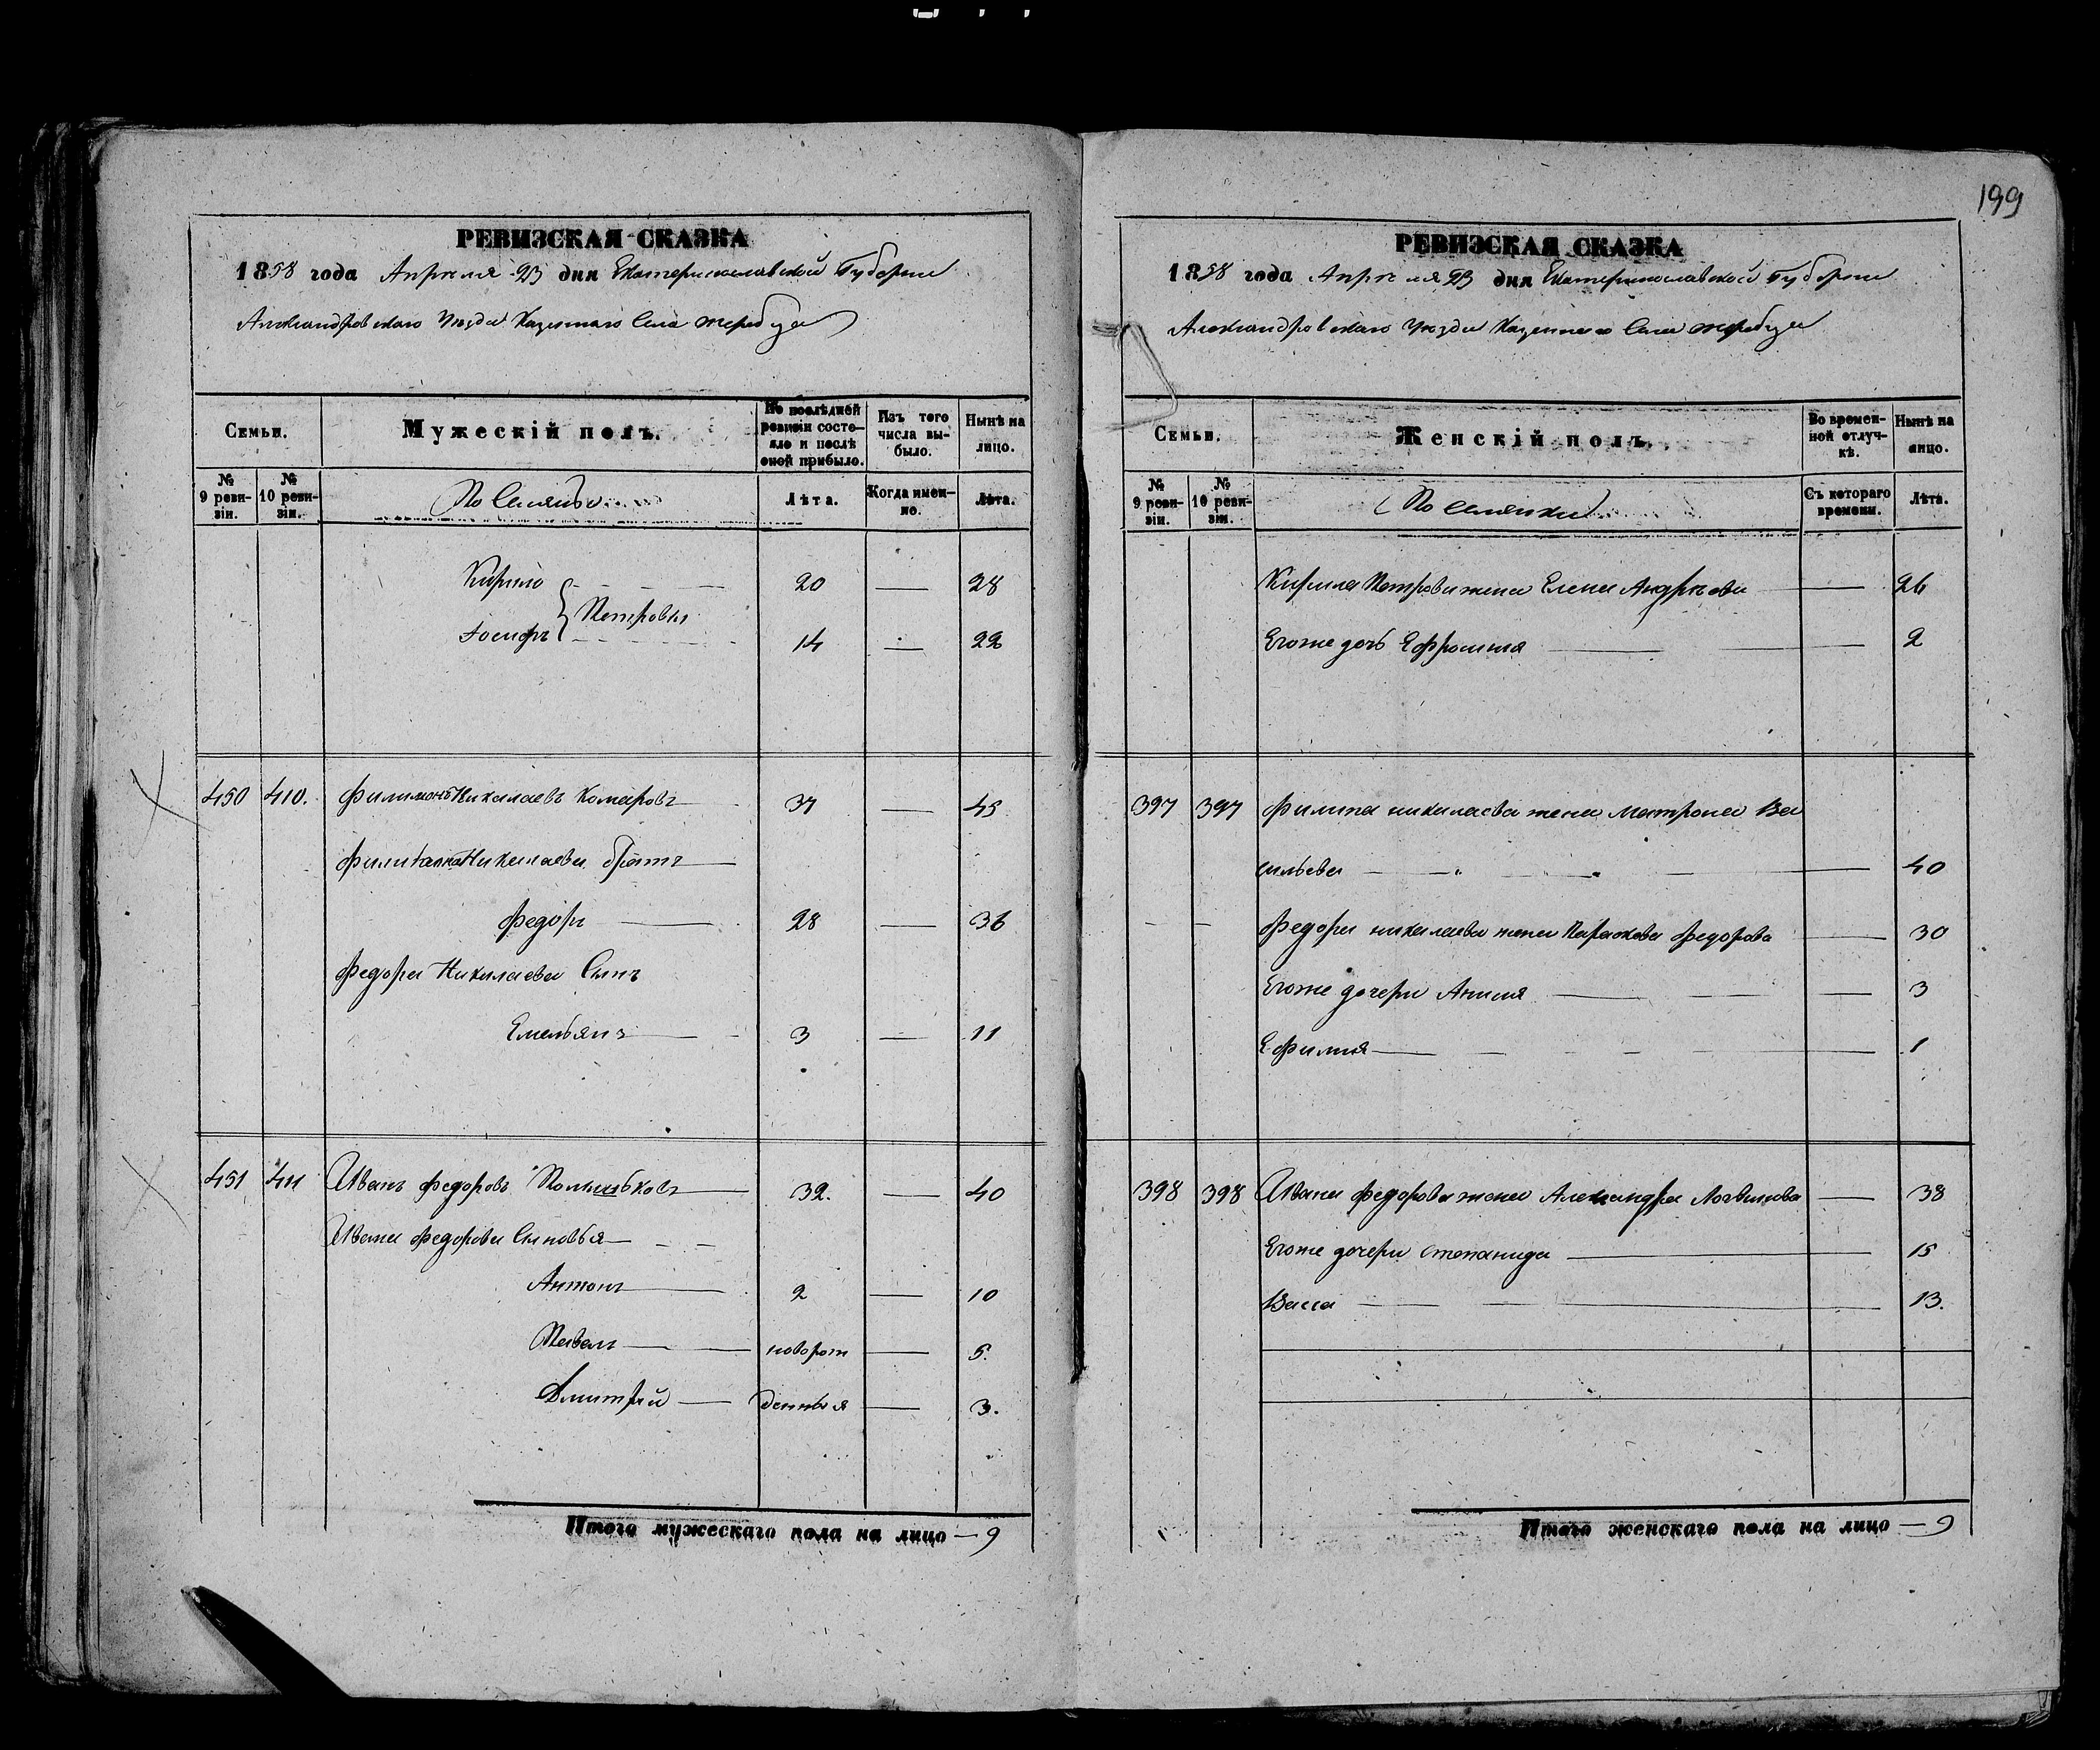 199
РЕВИЗСКАЯ СКАЗКА
1858 года Апреля 23 дня Екатеринославской Губернии
Александровскаго Уезда Казеннаго Села Жеребца
Семьи.
Мужескій полъ.
По послѣдней ревизіи состояло и послѣ оной прибыло.
Изъ того числа выбыло.
Нынѣ на лицо.
№ 9 ревизіи.
№ 10 ревизіи.
Лѣта.
Когда именно.
Лѣта.
Кирило 20 — 28
Петровы
Іосифъ 14 — 22
450 410. Филимонъ Николаевъ Комаровъ 37 — 45
Николаева братъ
Федоръ 28 — 36
Федора Николаева Сынъ
Емельянъ 3 — 11
451 411 Иванъ Федоровъ 32. — 40
Ивана Федорова Сыновья
Антонъ 2 — 10
Павелъ новорож — 5.
Дмитрій денныя — 3.
Итого мужескаго пола на лицо — 9
РЕВИЗСКАЯ СКАЗКА
1858 года Апреля 23 дня Екатеринославской Губернии
Александровскаго Уезда Казеннаго Села Жеребца
Семьи.
Женскій полъ.
Во временной отлучкѣ.
Нынѣ на лицо.
№ 9 ревизіи.
№ 10 ревизіи.
Съ котораго времени.
Лѣта.
Кирила Петрова жена Елена Андреева — 26
Егоже дочь Ефросиния — 2
397 397 Филипа николаева жена Матрона Ва
сильева — 40
Федора николаева жена Параскева Федорова — 30
Егоже дочери Анисия — 3
Ефимия — 1
398 398 Ивана Федорова жена Александра Логвинова — 38
Егоже дочери Степанида — 15
Васса — 13.
Итого женскаго пола на лицо — 9